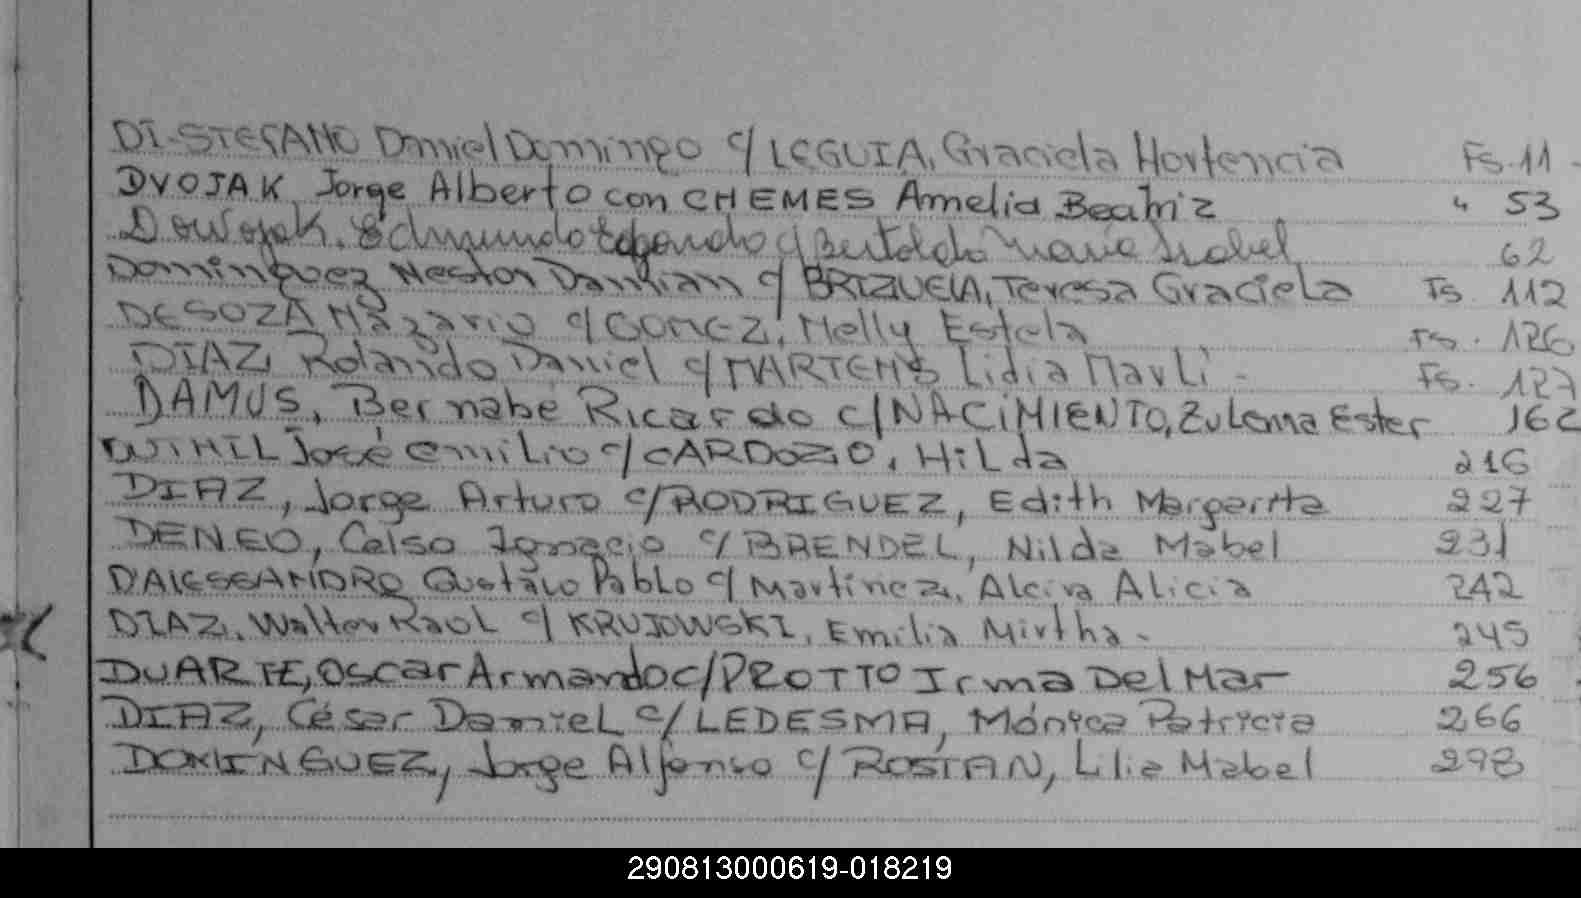 DI-STEFANO Daniel Domingo c/ LEGUIA, Graciela Hortencia Fs. 11
DVOJAK, Jorge Alberto con CHEMES Amelia Beatriz " 53
Dowojak, Edmundo c/ Bertoldo María Isabel 62
Dominguez Nestor Damian c/ BRIZUELA, Teresa Graciela Fs. 112
DESOZA Nazario c/ GOMEZ, Nelly Estela Fs. 126
DIAZ, Rolando Daniel c/ MARTENS Lidia Marli - Fs. 127
DAMUS, Bernabé Ricardo c/ NACIMIENTO, Zulema Ester 162
José emilio c/ CARDOZO, Hilda 216
DIAZ, Jorge Arturo c/ RODRIGUEZ, Edith Margarita 227
DENEO, Celso Ignacio c/ BRENDEL, Nilda Mabel 231
D'ALESSANDRO Gustavo Pablo c/ Martinez, Alcira Alicia 242
DIAZ, Walter Raul c/ KRUJOWSKI, Emilia Mirtha - 245
DUARTE, Oscar Armando c/ PROTTO Irma Del Mar 256
DIAZ, César Daniel c/ LEDESMA, Mónica Patricia 266
DOMINGUEZ, Jorge Alfonso c/ ROSTAN, Lilia Mabel 298
290813000619-018219